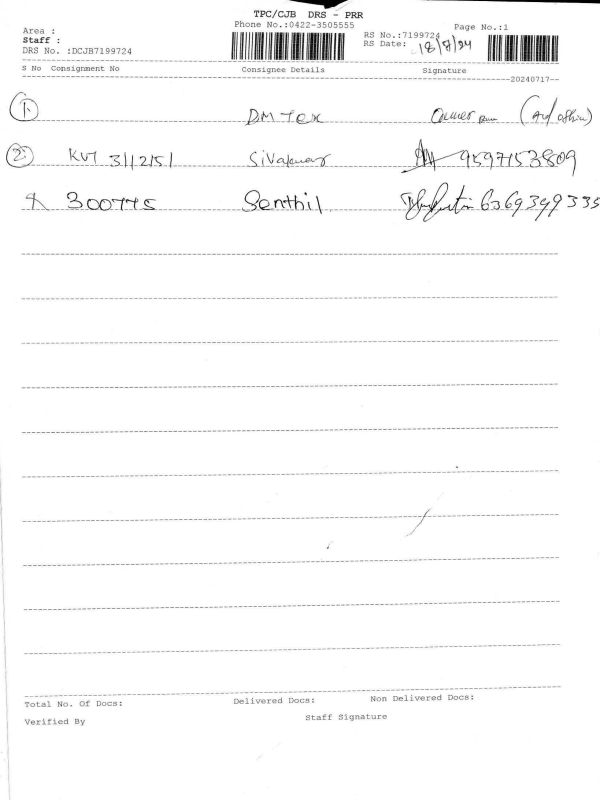 TPC/CJB DRS - PRR
Phone No.:0422-3505555
Page No.:1
Area :
Staff :
DRS No. :DCJB7199724
RS No.:7199724
RS Date: 18/7/24
S No Consignment No Consignee Details Signature
20240717
1. DM Tex Owner
2. KVT 3/12/51 Sivakumar 9597153809
300775 Senthil 6369399335
Total No. Of Docs: Delivered Docs: Non Delivered Docs:
Verified By Staff Signature